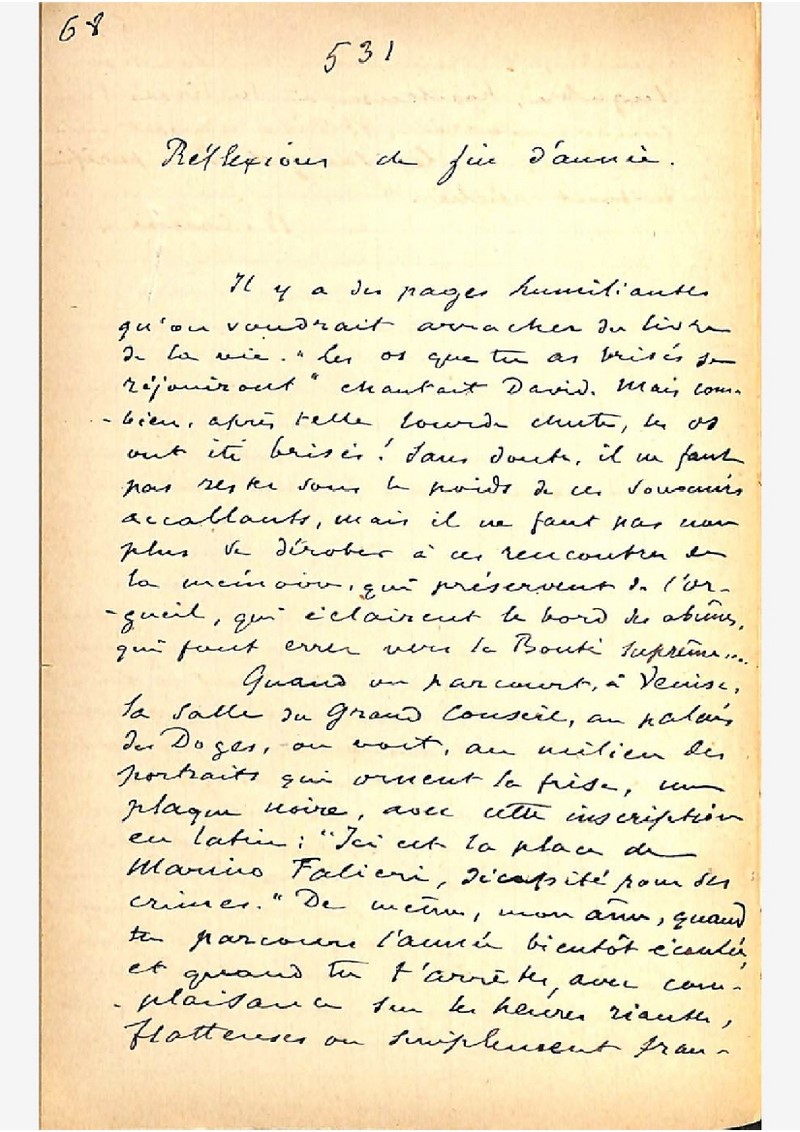 68
531
Réflexions de fin d'année.
Il y a des pages humiliantes
qu'on voudrait arracher du livre
de la vie. "Les os que tu as brisés se
réjouiront" chantait David. Mais com-
-bien, après telle lourde chute, les os
ont été brisés! Sans doute, il ne faut
pas rester sous le poids de ces souvenirs
accablants, mais il ne faut pas non
plus se dérober à ces rencontres de
la mémoire, qui préservent de l'or-
-gueil, qui éclairent le bord des abîmes,
qui font errer vers la Bonté suprême...
Quand on parcourt, à Venise,
la salle du Grand Conseil, au palais
des Doges, on voit, au milieu des
portraits qui ornent la frise, une
plaque noire, avec cette inscription
en latin: "Ici est la place de
Marino Falieri, décapité pour ses
crimes." De même, mon âme, quand
tu parcours l'année bientôt écoulée,
et quand tu t'arrêtes, avec com-
-plaisance sur les heures riantes,
flatteuses ou simplement fran-